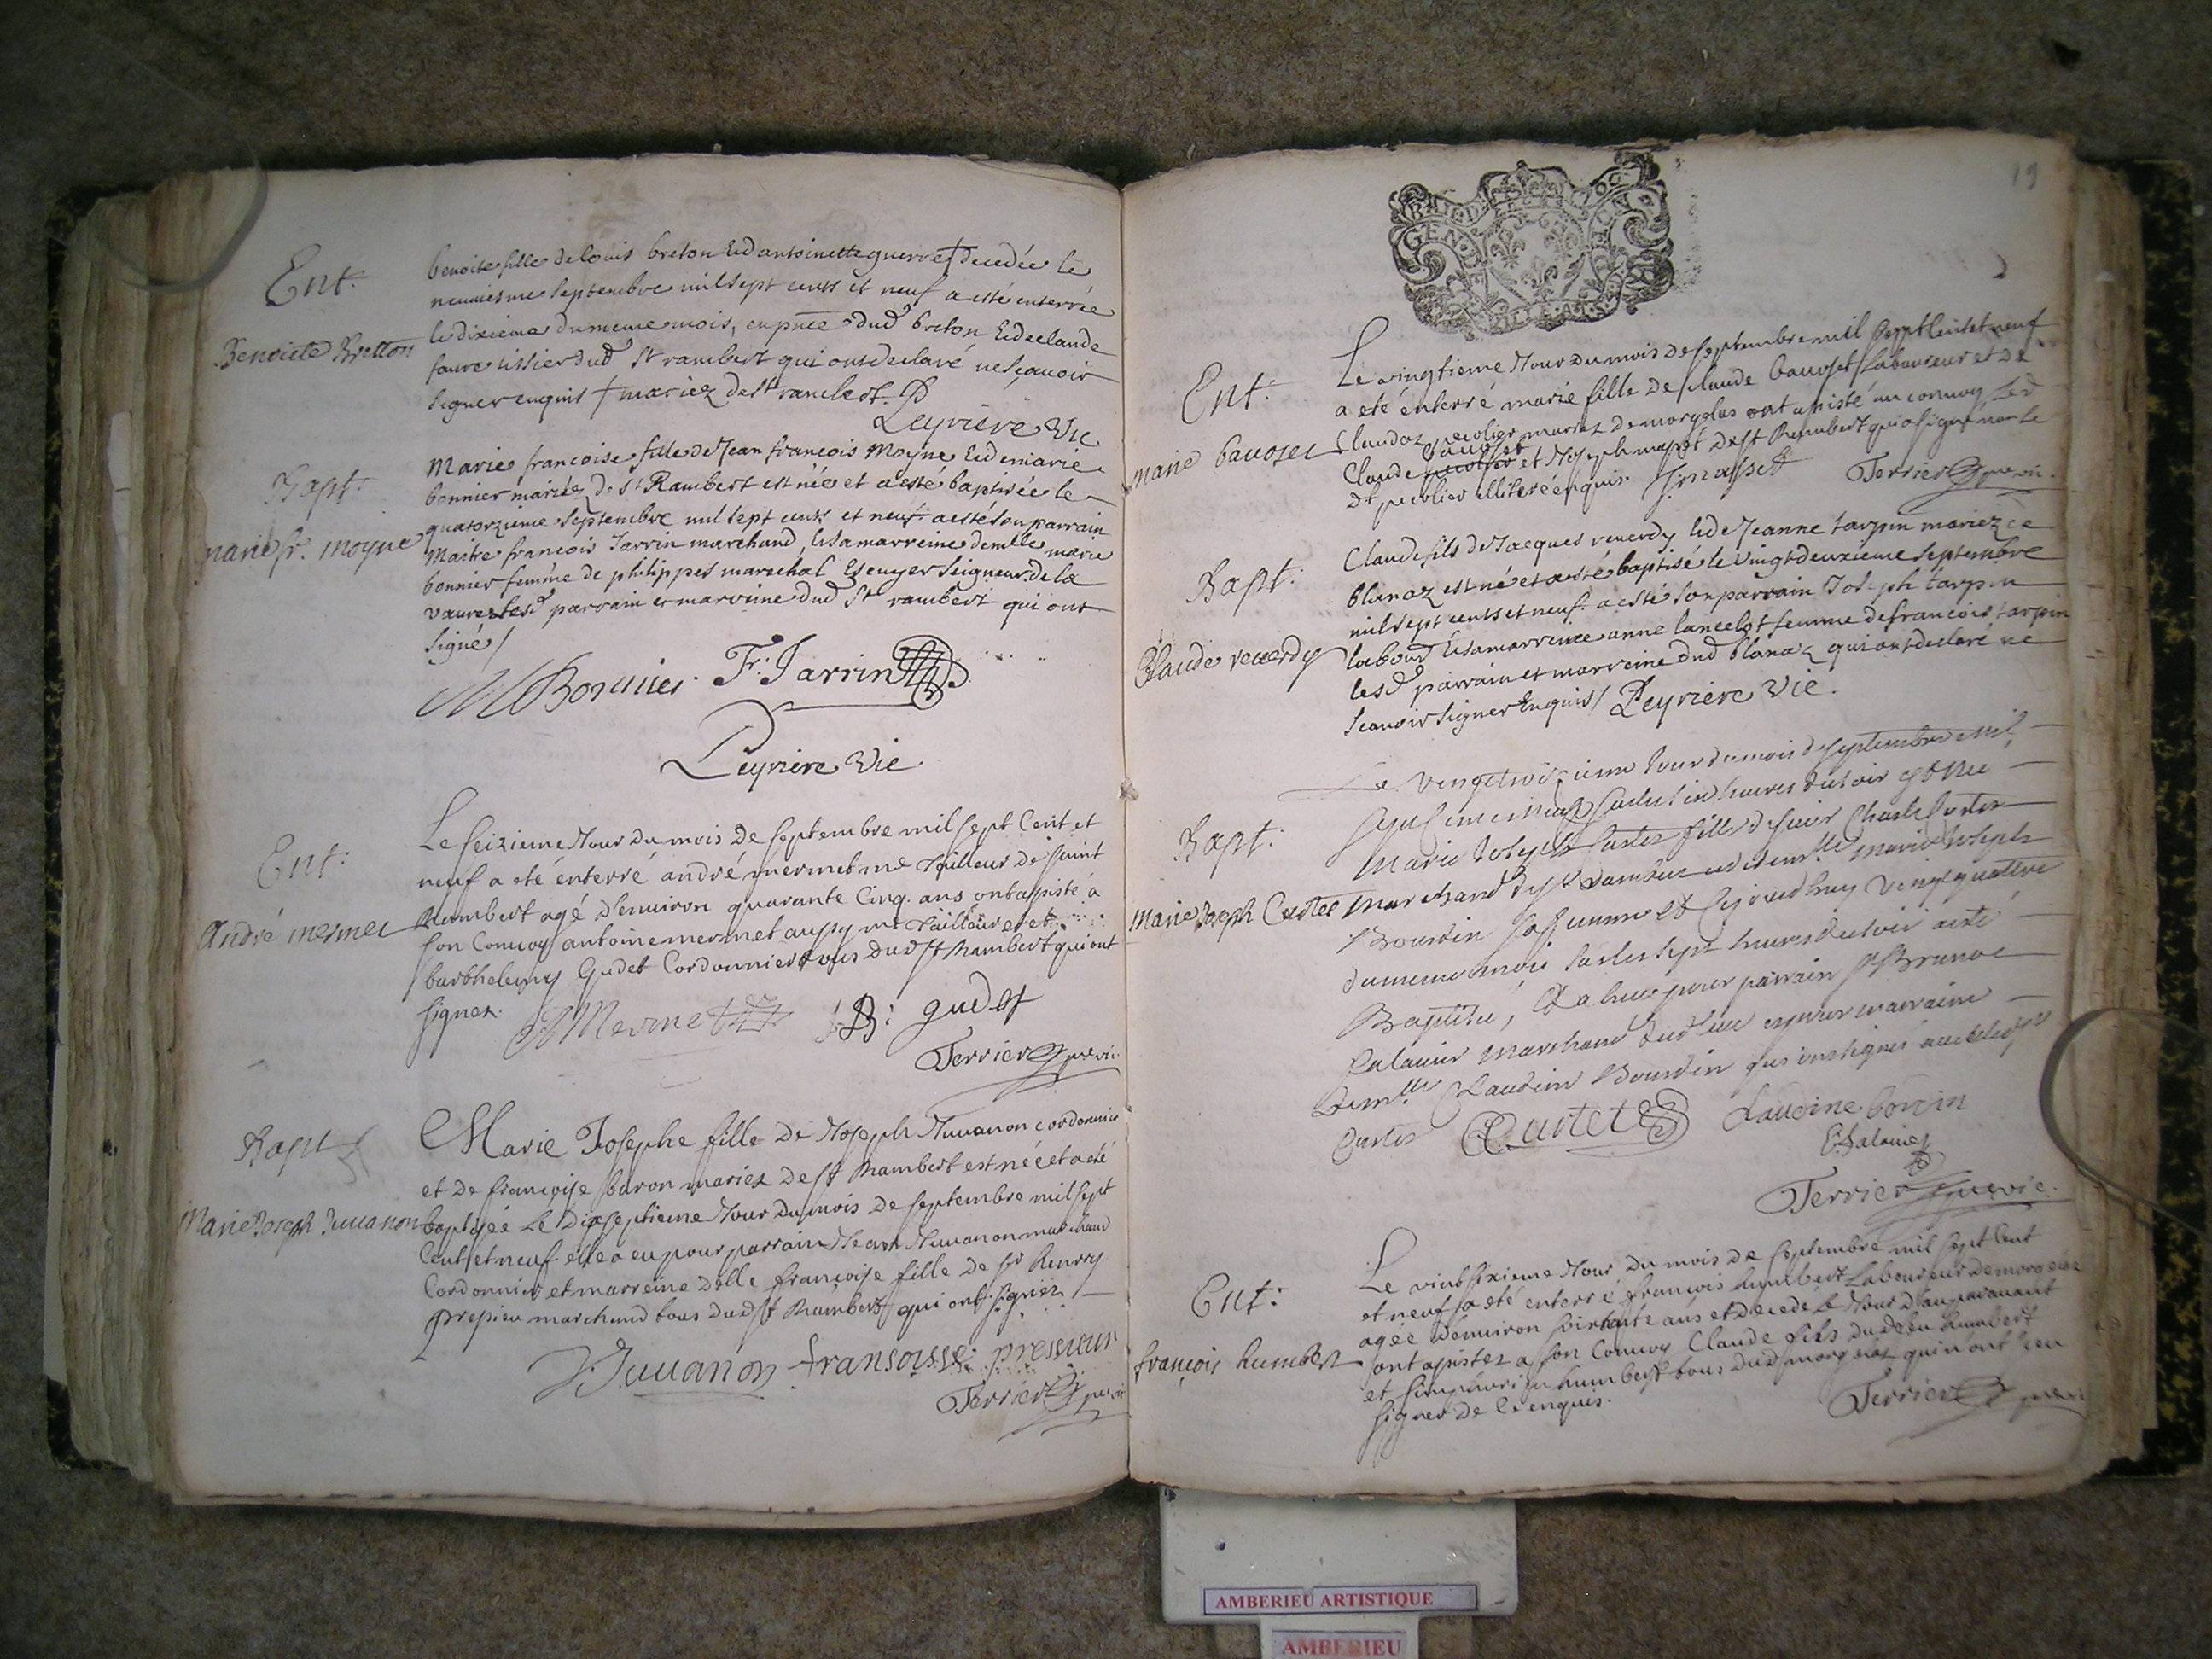 Ent.
Benoicte Bretton
benoite fille de louis breton et d'antoinette guerre † decedée le
neuviesme septembre mil sept cents et neuf a esté enterrée
le dixieme du meme mois, en pnce dud breton et de claude
favre tissier dud St rambert qui ont declaré ne sçavoir
signer enquis † mariez de St rambert
Leyriere Vic
Bapt.
marie fr. moyne
Marie francoise fille de Jean francois Moyne et de marie
bonnier mariez de St Rambert est née et a esté baptisée le
quatorzieme septembre mil sept cents et neuf a esté son parrain
Maitre francois Jarrin marchand et sa marreine demlle marie
bonnier femme de philippes marechal Escuyer seigneur de la
vavre lesd parrain et marreine dud St rambert qui ont
signé /
M Bonnier F: Jarrin
Leyriere Vic
Ent:
André mermet
Le seizieme Jour du mois de septembre mil sept Cent et
neuf a eté enterré andré mermet me Tailleur de saint
Rambert agé d'environ quarante Cinq ans ont assisté a
son Convoy antoine mermet aussy me Tailleur et
barthelemy Gudet Cordonnier tous dud St Rambert qui ont
signez.
Mermet B: gudet
Terrier
Bapt
Marie Joseph Juvanon
Marie Josephe fille de Joseph Juvanon cordonnier
et de françoise baron mariez de St Rambert est née et a eté
baptisée Le Dixseptieme Jour du mois de septembre mil sept
Cent et neuf elle a eu pour parrain Jean Juvanon marchand
Cordonnier et marreine delle françoise fille de Sr Henry
prepieu marchand tous dud St Rambert qui ont signez
J Juvanon fransoisse
Terrier
19
GEN
Ent:
marie bavozet
Le vingtieme Jour du mois de septembre mil sept Cent et neuf
a eté enterré marie fille de Claude bavoset Laboureur et de
Claudaz pecolier mariez de morgelas ont assisté au convoy led
Claude bavoset et Joseph masset de St Rambert qui a signé non le
dt pecolier illiteré enquis. J masset Terrier
Bapt:
Claude reverdy
Claude fils de Jacques reverdy et de Jeanne tarpin mariez de
blanaz est né et a esté baptisé le vingt deuxieme septembre
mil sept cents et neuf a esté son parrain Joseph tarpin
labour et sa marreine anne lancelot femme de francois tarpin
lesd parrain et marreine dud blanaz qui ont declaré ne
scavoir signer Enquis / Leyriere Vic.
Bapt:
Marie Joseph Custet
Le vingttroizieme Jour du mois de septembre mil
sept Cent et neuf sur les six heures du soir est née
Marie Joseph Custet fille de sieur Charle Custet
marchand de St Rambert et de demlle Marie Joseph
Bourdin sa femme et ce jourdhuy vingtquatre
du meme mois sur les sept heures du soir a esté
Baptisée, et a heue pour parrain
marchand dud lieu et pour marraine
Demlle Claudine Bourdin qui ont signés avec led sr
Custet Custet Claudine bordin
Terrier
Ent:
françois humbert
Le vintsixieme Jour du mois de septembre mil sept Cent
et neuf a eté enterré françois humbert Laboureur de
agée d'environ soixante ans et decedé le Jour d'auparavant
ont assistez a son Convoy Claude fils dud feu humbert
et humbert tous dud qui n'ont sceu
signer de ce enquis. Terrier
AMBERIEU ARTISTIQUE
AMBERIEU